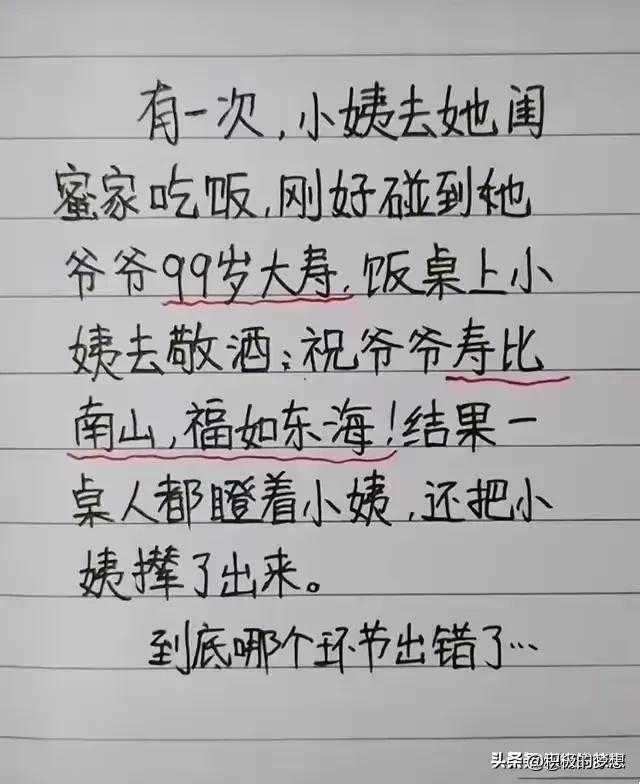 有一次，小姨去她闺
蜜家吃饭，刚好碰到他
爷爷99岁大寿，饭桌上小
姨去敬酒：祝爷爷寿比
南山，福如东海！结果一
桌人都瞪着小姨，还把小
姨撵了出来。
到底哪个环节出错了…
头条@积极的梦想